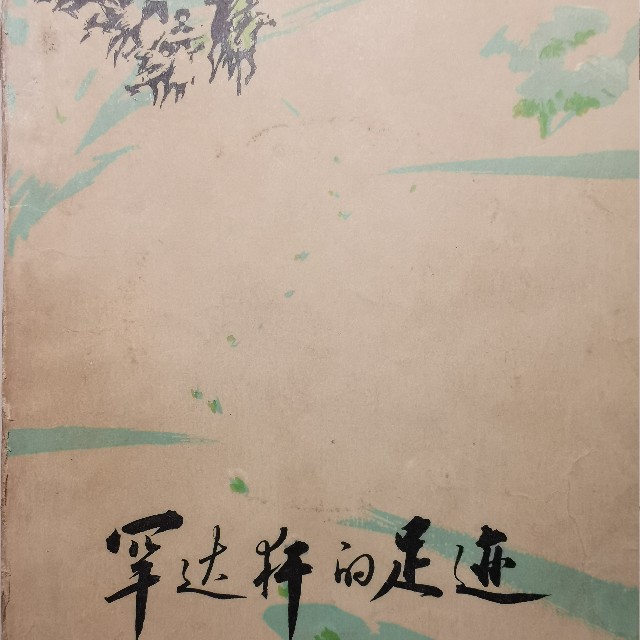 罕达犴的足迹